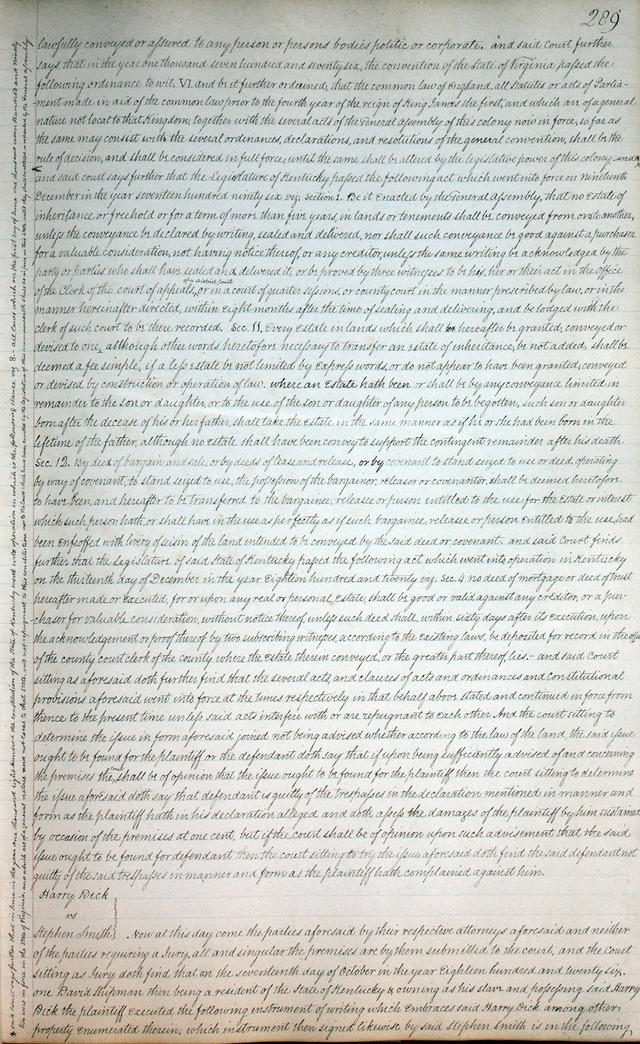 289
lawfully conveyed or assured to any person or persons bodies politic or corporate. and said Court further
says that in the year one thousand seven hundred and seventy six, the convention of the State of Virginia passed the
following ordinance to wit, VI. and be it further ordained, that the common law of England, all statutes or acts of Parlia-
ment made in aid of the common law prior to the fourth year of the reign of King James the first, and which are of a general
nature not local to that Kingdom, together with the several acts of the General Assembly of this colony now in force, so far as
the same may consist with the several ordinances, declarations, and resolutions of the general convention, shall be the
rule of decision, and shall be considered in full force, until the same shall be altered by the legislative power of this colony.
and said court says further that the Legislature of Kentucky passed the following act which went into force on Nineteenth
December in the year seventeen hundred ninety six viz: Section 1. Be it Enacted by the General Assembly, that no Estate of
inheritance or freehold or for a term of more than five years, in lands or tenements shall be conveyed from one to another,
unless the conveyance be declared by writing, sealed and delivered, nor shall such conveyance be good against a purchaser
for a valuable consideration, not having notice thereof, or any creditor, unless the same writing be acknowledged by the
party or parties who shall have sealed and delivered it, or be proved by three witnesses to be his, her or their act in the office
of the Clerk of the court of appeals, of a district court or in a court of quarter sessions, or county court in the manner prescribed by law, or in the
manner hereinafter directed, within eight months after the time of sealing and delivering, and be lodged with the
clerk of such court to be there recorded. Sec. 11. Every Estate in lands which shall hereafter be granted, conveyed or
devised to one, although other words heretofore necessary to transfer an estate of inheritance, be not added, shall be
deemed a fee simple, if a less estate be not limited by Express words, or do not appear to have been granted, conveyed
or devised by construction or operation of law. where an Estate hath been or shall be by any conveyance limited in
remainder to the son or daughter, or to the use of the son or daughter of any person to be begotten, such son or daughter
born after the decease of his or her father, shall take the Estate in the same manner as if his or she had been born in the
lifetime of the father, although no estate shall have been convey to support the contingent remainder after his death.
Sec. 12. By deed of bargain and sale, or by deeds of lease and release, or by covenant to stand seized to use or deed, operating
by way of covenant, to stand seized to use, the possession of the bargainor, releasor or covenantor, shall be deemed heretofore
to have been, and hereafter to be transferred to the bargainee, releasee or person entitled to the use for the Estate or interest
which such person hath, or shall have in the use as perfectly as if such bargainee, releasee or person Entitled to the use, had
been enfeoffed with livery of seisin of the land intended to be conveyed by the said deed or covenant. and said Court finds
further that the Legislature of said State of Kentucky passed the following act which went into operation in Kentucky
on the thirteenth day of December in the year Eighteen hundred and twenty viz. Sec. 4 no deed of mortgage or deed of trust
hereafter made or Executed, for or upon any real or personal Estate, shall be good or valid against any creditor, or a pur-
chaser for valuable consideration, without notice thereof, unless such deed shall, within sixty days after its Execution, upon
the acknowledgement or proof thereof by two subscribing witnesses, according to the Existing laws, be deposited for record in the office
of the county court clerk of the County where the Estate therein conveyed, or the greater part thereof, lies.- and said Court
sitting as aforesaid doth further find that the several acts, and clauses of acts and ordinances and Constitutional
provisions aforesaid went into force at the times respectively in that behalf above stated and continued in force from
thence to the present time unless said acts interfere with or are repugnant to each other And the court sitting to
determine the issue in form aforesaid joined not being advised whether according to the law of the land, the said issue
ought to be found for the plaintiff or the defendant doth say that if upon being sufficently advised of and concerning
the premises they shall be of opinion that the issue ought to be found for the plaintiff then the court sitting to determine
the issue aforesaid doth say that defendant is guilty of the trespasses in the declaration mentioned in manner and
form as the plaintiff hath in his declaration alleged and doth assess the damages of the plaintiff by him sustained
by occasion of the premises at one cent, but if the court shall be of opinion upon such advisement that the said
issue ought to be found for defendant then the court sitting to try the issue aforesaid doth find the said defendant not
guilty of the said trespasses in manner and form as the plaintiff hath complained against him.
Harry Dick
vs
Stephen Smith Now at this day come the parties aforesaid by their respective attorneys aforesaid and neither
of the parties requiring a Jury, all and singular the premises are by them submitted to the court, and the Court
sitting as Jury doth find that on the seventeenth day of October in the year Eighteen hundred and twenty six,
one David Shipman then being a resident of the State of Kentucky & owning as his slave and possessing said Harry
Dick the plaintiff Executed the following instrument of writing which Embraces said Harry Dick among other
property enumerated therein; which instrument then signed likewise by said Stephen Smith is in the following